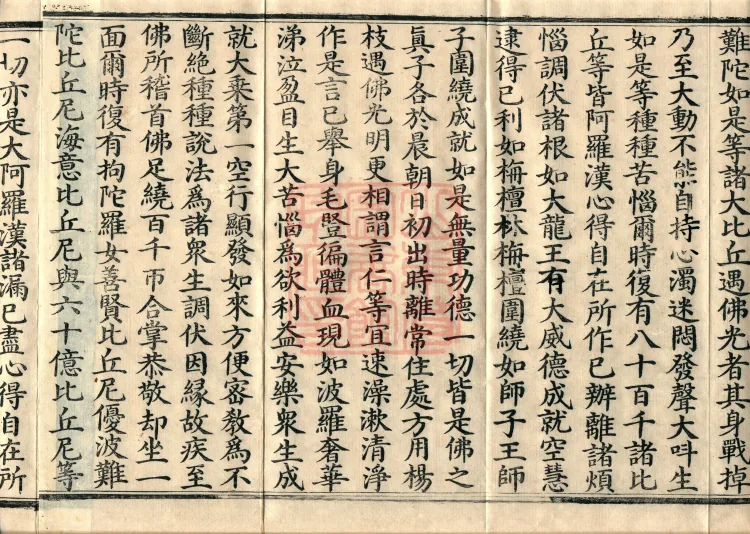 難陀如是等諸大比丘遇佛光者其身戰掉
乃至大動不能自持心濁迷悶發聲大叫生
如是等種種苦惱爾時復有八十百千諸比
丘等皆阿羅漢心得自在所作已辦離諸煩
惱調伏諸根如大龍王有大威德成就空慧
逮得已利如栴檀林栴檀圍繞如師子王師
子圍繞成就如是無量功德一切皆是佛之
真子各於晨朝日初出時離常住處方用楊
枝遇佛光明更相謂言仁等宜速澡漱清淨
作是言已舉身毛豎徧體血現如波羅奢華
涕泣盈目生大苦惱為欲利益安樂眾生成
就大乘第一空行顯發如來方便密教為不
斷絕種種說法為諸眾生調伏因緣故疾至
佛所稽首佛足繞百千帀合掌恭敬却坐一
面爾時復有拘陀羅女善賢比丘尼優波難
陀比丘尼海意比丘尼與六十億比丘尼等
一切亦是大阿羅漢諸漏已盡心得自在所